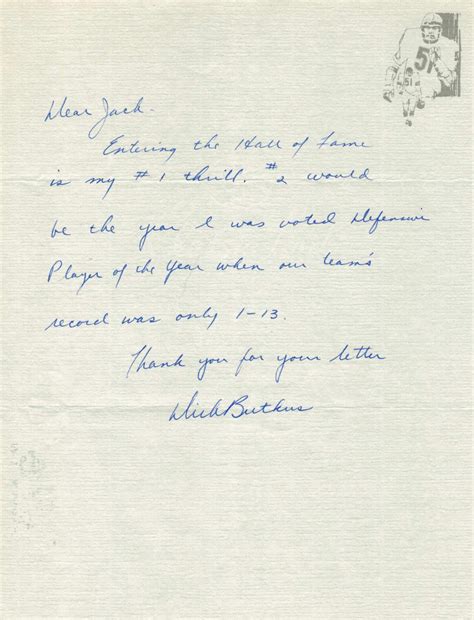 51
Dear Jack -
Entering the Hall of Fame
is my #1 thrill. #2 would
be the year I was voted Defensive
Player of the Year when our team's
record was only 1-13.
Thank you for your letter
Dick Butkus